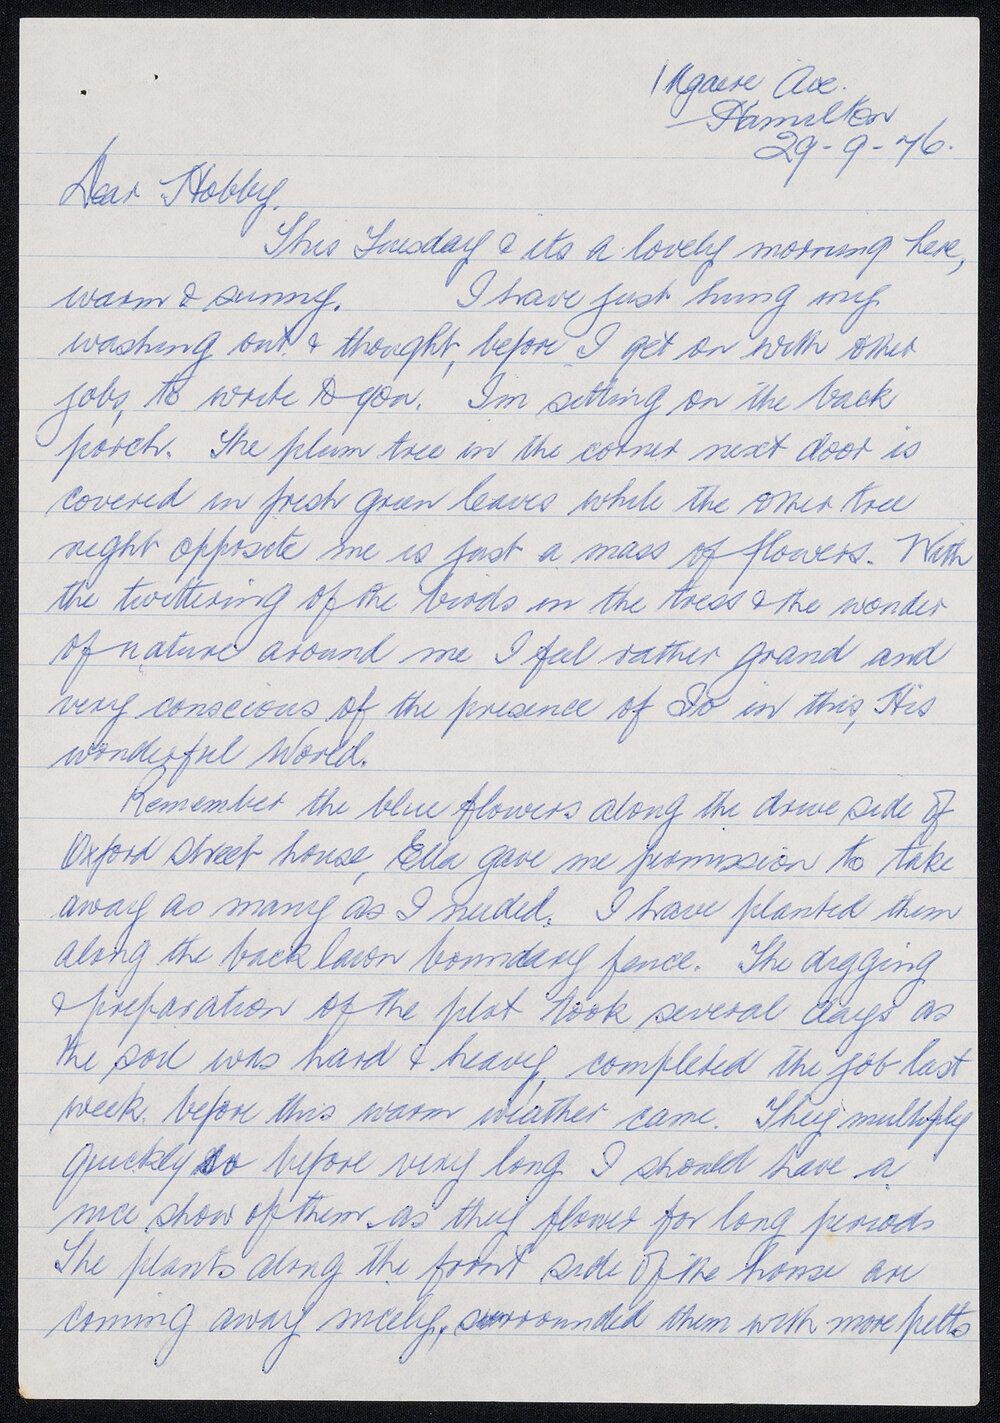 1 Ngaere Ave.
Hamilton
29-9-76.
Dear Hobby,
This Tuesday & its a lovely morning here,
warm & sunny. I have just hung my
washing out & thought, before I get on with other
jobs, to write to you. I'm sitting on the back
porch. The plum tree in the corner next door is
covered in fresh green leaves while the other tree
right opposite me is just a mass of flowers. With
the twittering of the birds in the trees & the wonder
of nature around me I feel rather grand and
very conscious of the presence of Io in this, His
wonderful World.
Remember the blue flowers along the drive side of
Oxford street house, Ella gave me permission to take
away as many as I needed. I have planted them
along the back lawn boundary fence. The digging
& preparation of the plot took several days as
the soil was hard & heavy, completed the job last
week before this warm weather came. They multiply
quickly so before very long I should have a
nice show of them as they flower for long periods
The plants along the front side of the house are
coming away nicely, surrounded them with more